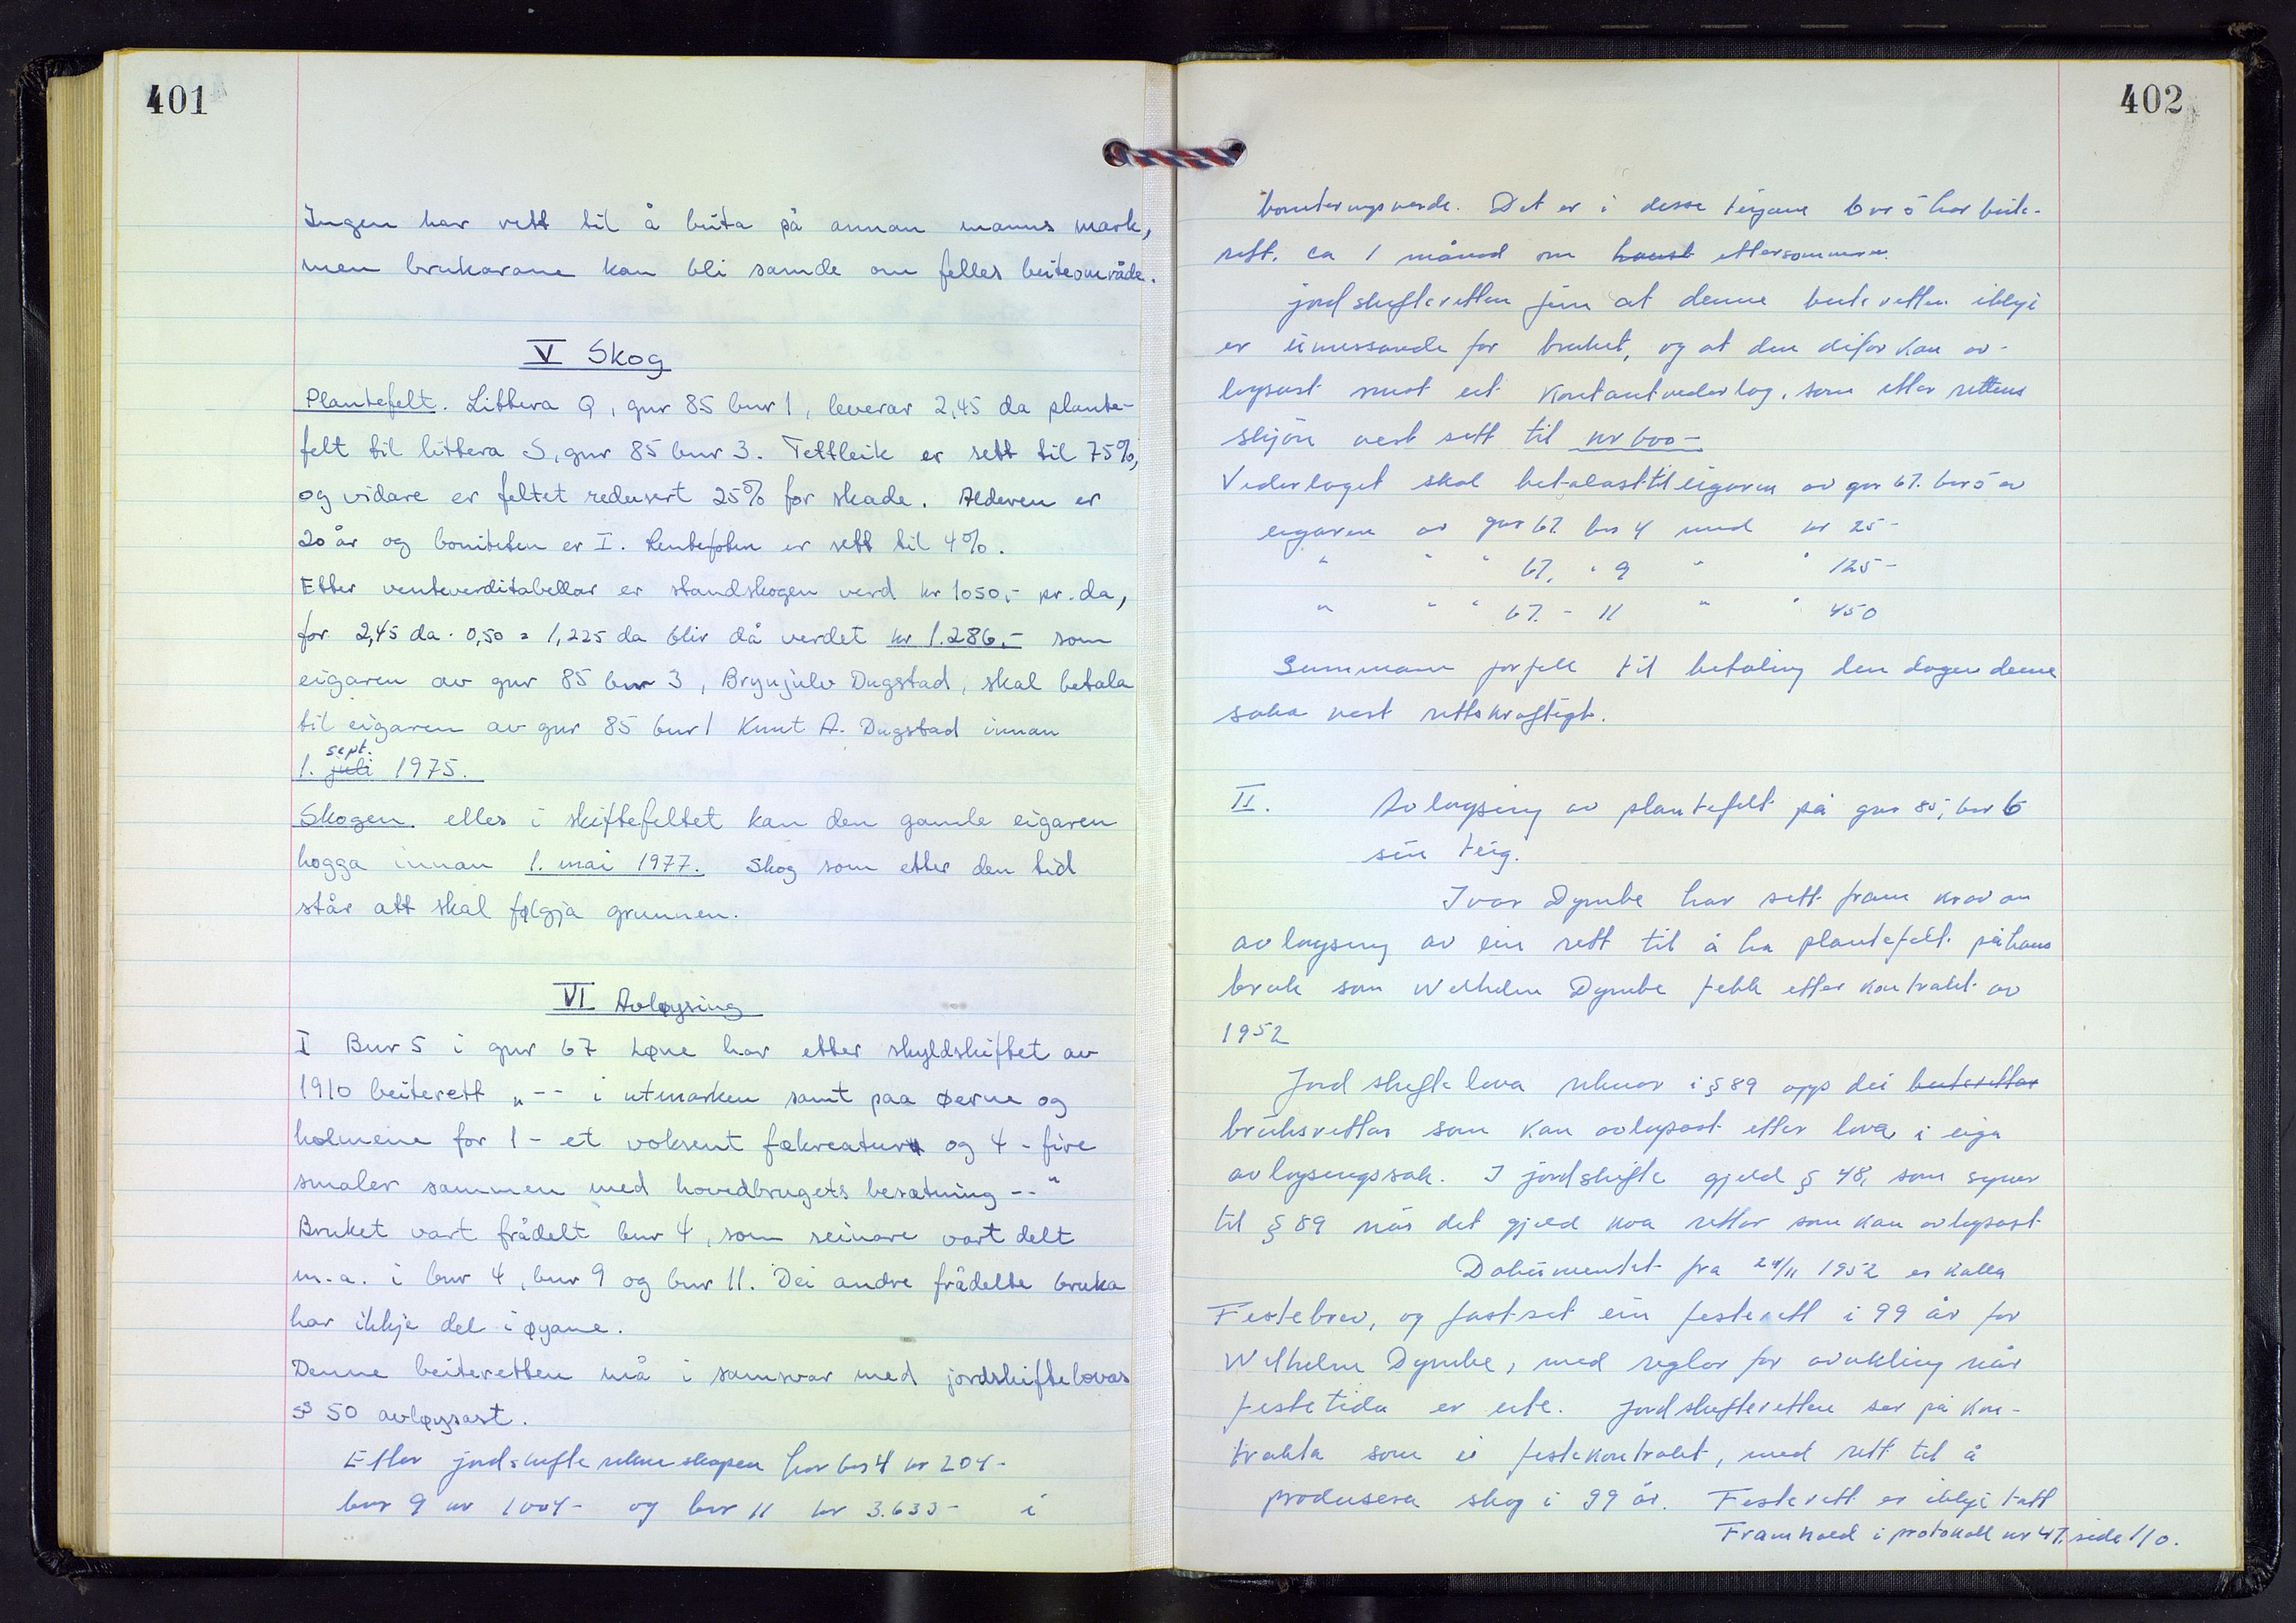 401
Ingen har rett til å beita på annan manns mark,
men brukarane kan bli samde om felles beiteområde.
V Skog
Plantefelt. Littera Q, gnr 85 bnr 1, leverar 2,45 da plante-
felt til littera S, gnr 85 bnr 3. Tettleik er sett til 75%,
og vidare er feltet redusert 25% for skade. Alderen er
20 år og boniteten er I. Rentefoten er sett til 4%.
Etter venteverditabellar er standskogen verd kr 1050,- pr. da,
for 2,45 da · 0,50 = 1,225 da blir då verdet kr 1.286,- som
eigaren av gnr 85 bnr 3, Brynjulv Dugstad, skal betala
til eigaren av gnr 85 bnr 1 Knut A. Dugstad innan
sept.
1. juli 1975.
Skogen elles i skiftefeltet kan den gamle eigaren
hogga innan 1. mai 1977. Skog som etter den tid
står att skal følgja grunnen.
VI Avløysing
I Bnr 5 i gnr 67 Løne har etter skyldskiftet av
1910 beiterett „-- i utmarken samt paa øerne og
holmene for 1 - et voksent fækreatur og 4 - fire
smaler sammen med hovedbrugets besætning --"
Bruket vart frådelt bnr 4, som seinare vart delt
m.a. i bnr 4, bnr 9 og bnr 11. Dei andre frådelte bruka
har ikkje del i øyane.
Denne beiteretten må i samsvar med jordskiftelovas
§ 50 avløysast.
Etter jordskifterekneskapen har bnr 4 kr 204-
bnr 9 kr 1004- og bnr 11 kr 3.633- i
402
boniteringsverde. Det er i desse teigane bnr 5 har beite-
rett, ca 1 månad om haust ettersommaren.
Jordskifteretten finn at denne beiteretten ikkje
er einessande for bruket, og at den difor kan av-
løysast mot eit kontantvederlag, som etter rettens
skjøn vert sett til kr 600-
Vederlaget skal betalast til eigaren av gnr 67. bnr 5 av
eigaren av gnr 67. bnr 4 med kr 25-
" " " 67. " 9 " " 125-
" " " 67. - 11 " " 450
Summane forfell til betaling den dagen denne
saka vert rettskraftigt.
II. Avløysing av plantefelt på gnr 85, bnr 6
sin teig.
Ivar Dymbe har sett fram krav om
avløysing av ein rett til å ha plantefelt på hans
bruk som Wilhelm Dymbe fekk etter kontrakt av
1952
Jordskiftelova reknar i § 89 opp dei beiterettar
bruksrettar som kan avløysast etter lova i eiga
avløysingssak. I jordskifte gjeld § 48, som syner
til § 89 når det gjeld kva rettar som kan avløysast
Dokumentet fra 24/11 1952 er kalla
Festebrev, og fastset ein festerett i 99 år for
Wilhelm Dymbe, med reglar for avvikling når
festetida er ute. Jordskifteretten ser på kon-
trakta som ei festekontrakt, med rett til å
produsera skog i 99 år. Festerett er ikkje tatt
Framhald i protokoll nr 47, side 110.